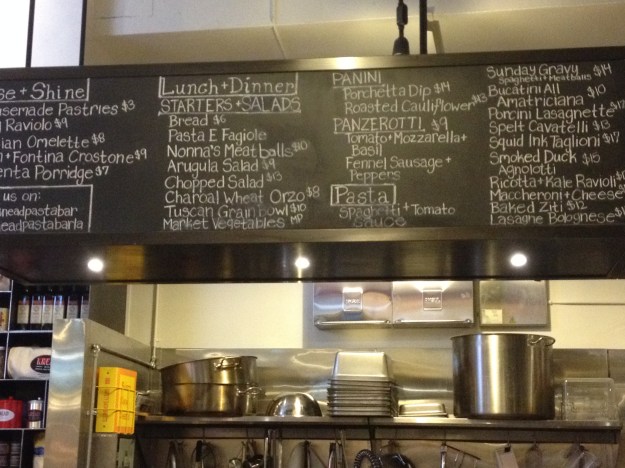 se + Shine
semade Pastries $3
Raviolo $9
ian Omelette $8
+ Fontina Crostone $9
enta Porridge $7
us on:
neadpastabar
eadpastabarla
Lunch + Dinner
STARTERS + SALADS
Bread $6
Pasta E Fagiole
Nonna's Meatballs $10
Arugula Salad $9
Chopped Salad $13
Charcoal Wheat Orzo $8
Tuscan Grain Bowl $10
Market Vegetables MP
PANINI
Porchetta Dip $14
Roasted Cauliflower $13
PANZEROTTI $9
Tomato + Mozzarella +
Basil
Fennel Sausage +
Peppers
Pasta
Spaghetti + Tomato
Sauce
Sunday Gravy $14
Spaghetti + Meatballs
Bucatini All
Amatriciana $10
Porcini Lasagnette
Spelt Cavatelli $13
Squid Ink Taglioni $17
Smoked Duck $15
Agnolotti
Ricotta + Kale Ravioli
Maccheroni + Cheese
Baked Ziti $12
Lasagne Bolognese